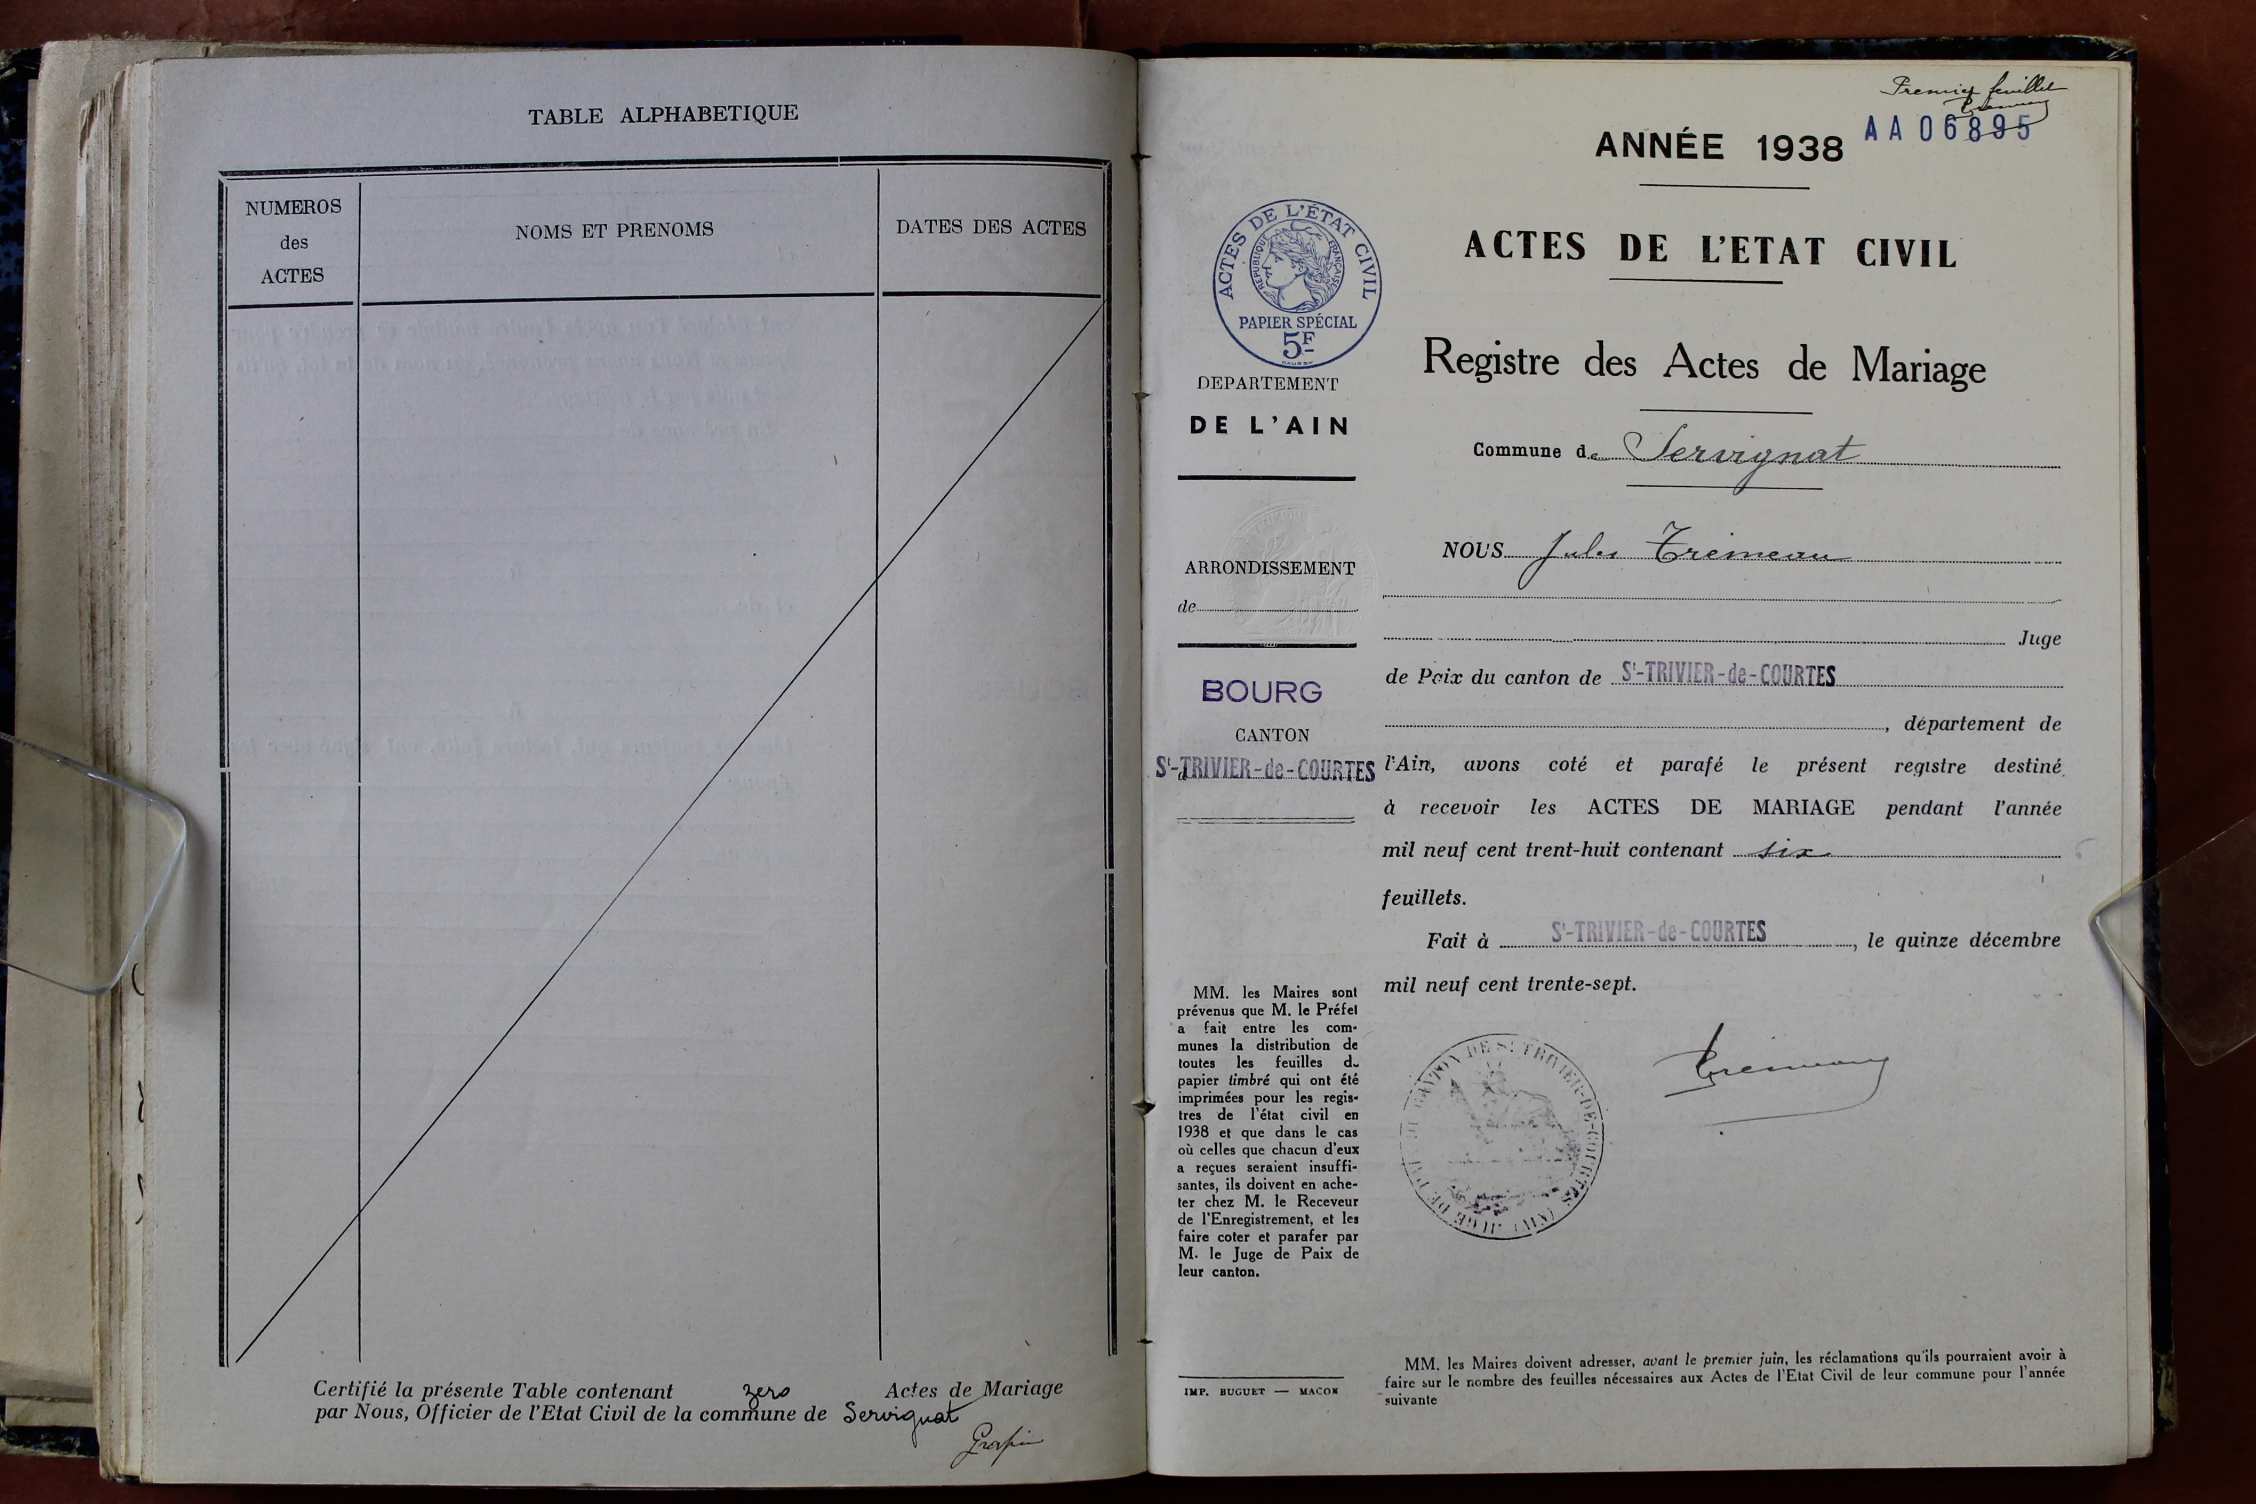 TABLE ALPHABETIQUE
NUMEROS
des
ACTES
NOMS ET PRENOMS
DATES DES ACTES
Certifié la présente Table contenant zero Actes de Mariage
par Nous, Officier de l'Etat Civil de la commune de Servignat
Premier feuillet
ANNÉE 1938
AA06895
ACTES DE L'ETAT CIVIL
Registre des Actes de Mariage
Commune de Servignat
ACTES DE L'ÉTAT CIVIL
REPUBLIQUE FRANÇAISE
PAPIER SPÉCIAL
5F
DEPARTEMENT
DE L'AIN
ARRONDISSEMENT
de
BOURG
CANTON
d
St-TRIVIER-de-COURTES
MM. les Maires sont
prévenus que M. le Préfet
a fait entre les com-
munes la distribution de
toutes les feuilles du
papier timbré qui ont été
imprimées pour les regis-
tres de l'état civil en
1938 et que dans le cas
où celles que chacun d'eux
a reçues seraient insuffi-
santes, ils doivent en ache-
ter chez M. le Receveur
de l'Enregistrement, et les
faire coter et parafer par
M. le Juge de Paix de
leur canton.
IMP. BUGUET — MACON
NOUS Jules Trémeau
Juge
de Paix du canton de St-TRIVIER-de-COURTES
, département de
l'Ain, avons coté et parafé le présent registre destiné
à recevoir les ACTES DE MARIAGE pendant l'année
mil neuf cent trent-huit contenant six
feuillets.
Fait à St-TRIVIER-de-COURTES, le quinze décembre
mil neuf cent trente-sept.
Trémeau
CANTON DE ST TRIVIER-DE-COURTES (AIN) JUGE DE
MM. les Maires doivent adresser, avant le premier juin, les réclamations qu'ils pourraient avoir à
faire sur le nombre des feuilles nécessaires aux Actes de l'Etat Civil de leur commune pour l'année
suivante